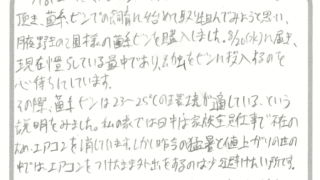 頂き、菌糸ビンでの飼育に初めて取り組んでみようと思い、
月夜野の２目様の菌糸ビンを購入しました。8/20(水)に届き、
現在慣らしている最中であり、幼虫をビンに投入するのを
心待ちにしています。
その際、菌糸ビンは23〜25℃の環境が適している、という
説明をみました。私の家では日中は家族全員仕事で不在の
ため、エアコンを消しています。しかし昨今の猛暑と値上がりの世の
中では、エアコンをつけたまま外出をするのは少々避けたい所です。